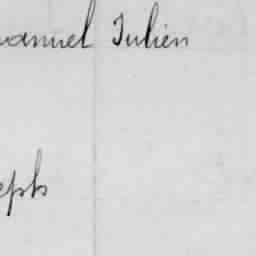 anuel Julien
eph